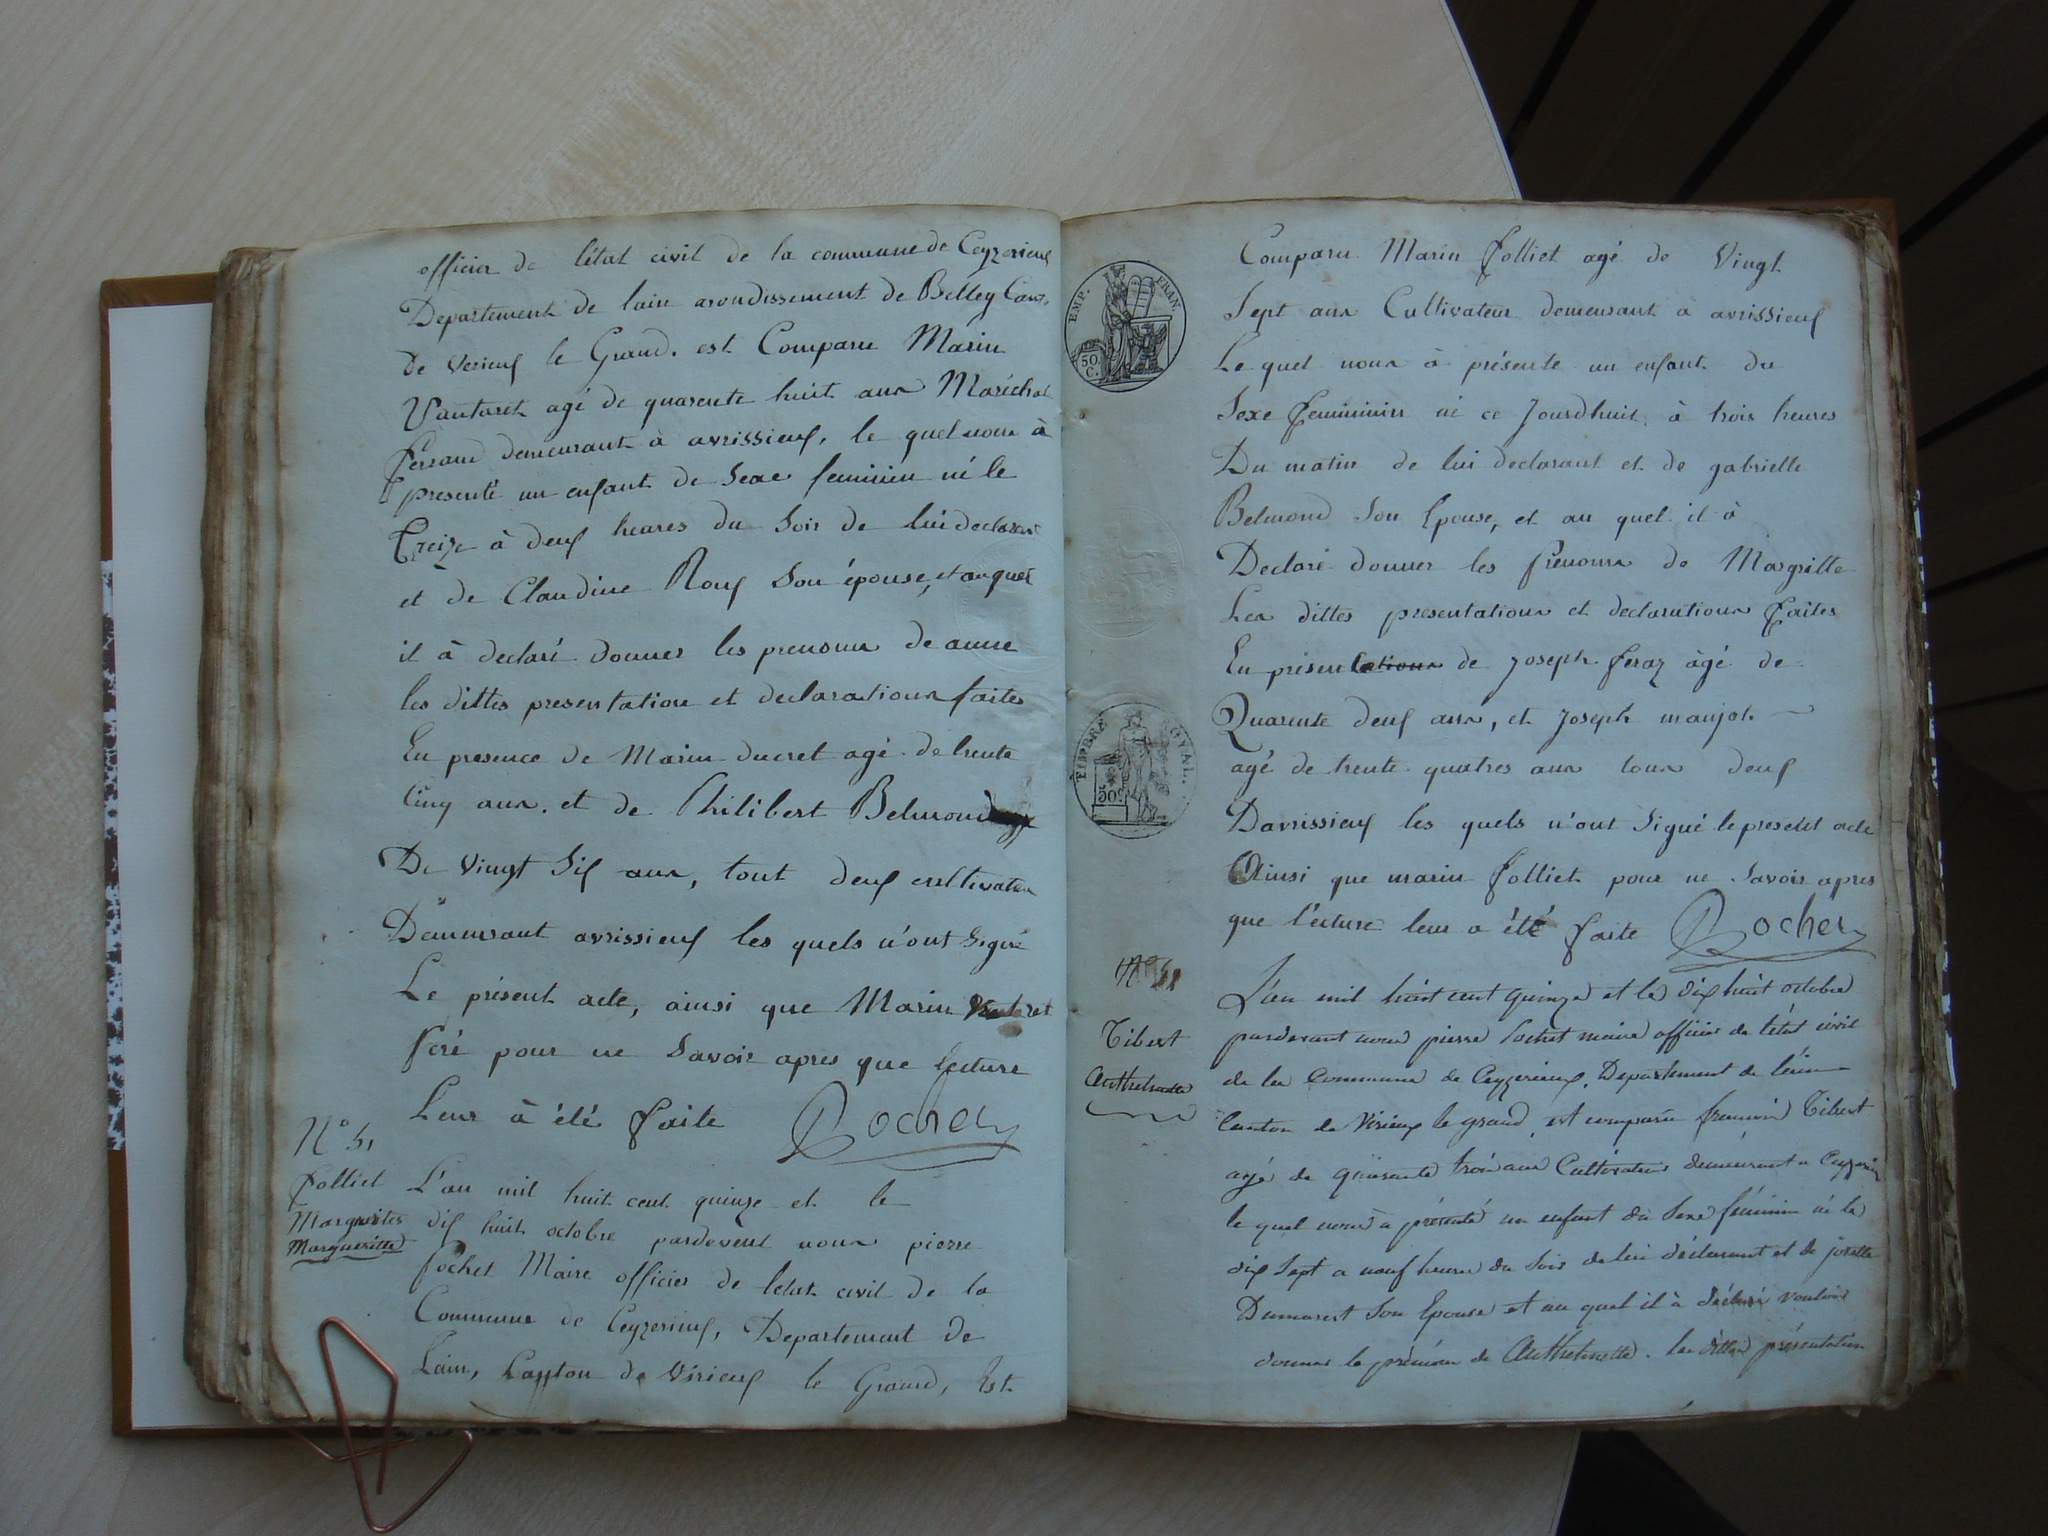 officier de l'état civil de la commune de Ceyzerieux
Departement de lain arondissement de Belley Can.
de verieux le Grand. est Comparu Marin
Vantaret agé de quarente huit ans Maréchal
ferrand demeurant à avrissieux, le quel nous à
presenté un enfant de Sexe feminin né le
Treize à deux heures du Soir de lui declarant
et de Claudine Roux Son épouse, et auquel
il à declaré donner les prenoms de anne
les dittes presentation et declarations faites
En presence de Marin ducret agé de trente
Cinq ans. et de Philibert Belmond
De vingt Six ans, tout deux cultivateur
Demeurant avrissieux les quels n'ont Signé
Le présent acte, ainsi que Marin Vantaret
pour ne Savoir apres que lecture
Leur à été faite Pochet
N° 51
folliet
Marguites
Margueritte
L'an mil huit cent quinze et le
dix huit octobre pardevent nous pierre
pochet Maire officier de letat civil de la
Commune de Ceyzerieux, Departement de
Lain, Canton de Virieux le Grand, Est
EMP. FRAN.
50 C.
TIMBRE ROYAL.
50c
Comparu Marin folliet agé de Vingt
Sept ans Cultivateur demeurant à avrissieux
Le quel nous à présenté un enfant du
Sexe feminin né ce Jourdhuit, à trois heures
Du matin de lui declarant et de gabrielle
Belmond Son Epouse, et au quel il à
Declaré donner les prenoms de Magritte
Les dittes presentations et declarations faites
En présentations de Joseph feraz âgé de
Quarente deux ans, et Joseph manjot
agé de trente quatres ans tous deux
Davrissieux les quels n'ont Signé le present acte
Ainsi que marin folliet pour ne Savoir apres
que l'ecture leur a été faite Pochet
Tibert
Anthelmette
L'an mil huit cent quinze et le dix huit octobre
pardevant nous pierre Pochet maire officier de l'état civil
de la Commune de Ceyzerieux, Departement de l'ain
Canton de Virieux le grand, est comparu Tibert
agé de quarante trois ans Cultivateur demeurant a Ceyzerieu
le quel nous à présenté un enfant du Sexe féminin né le
dix Sept a neuf heures du Soir de lui déclarant et de josette
Dumarest Son Epouse et au quel il à déclaré vouloir
donner le prénom de Anthelmette. les dittes présentation